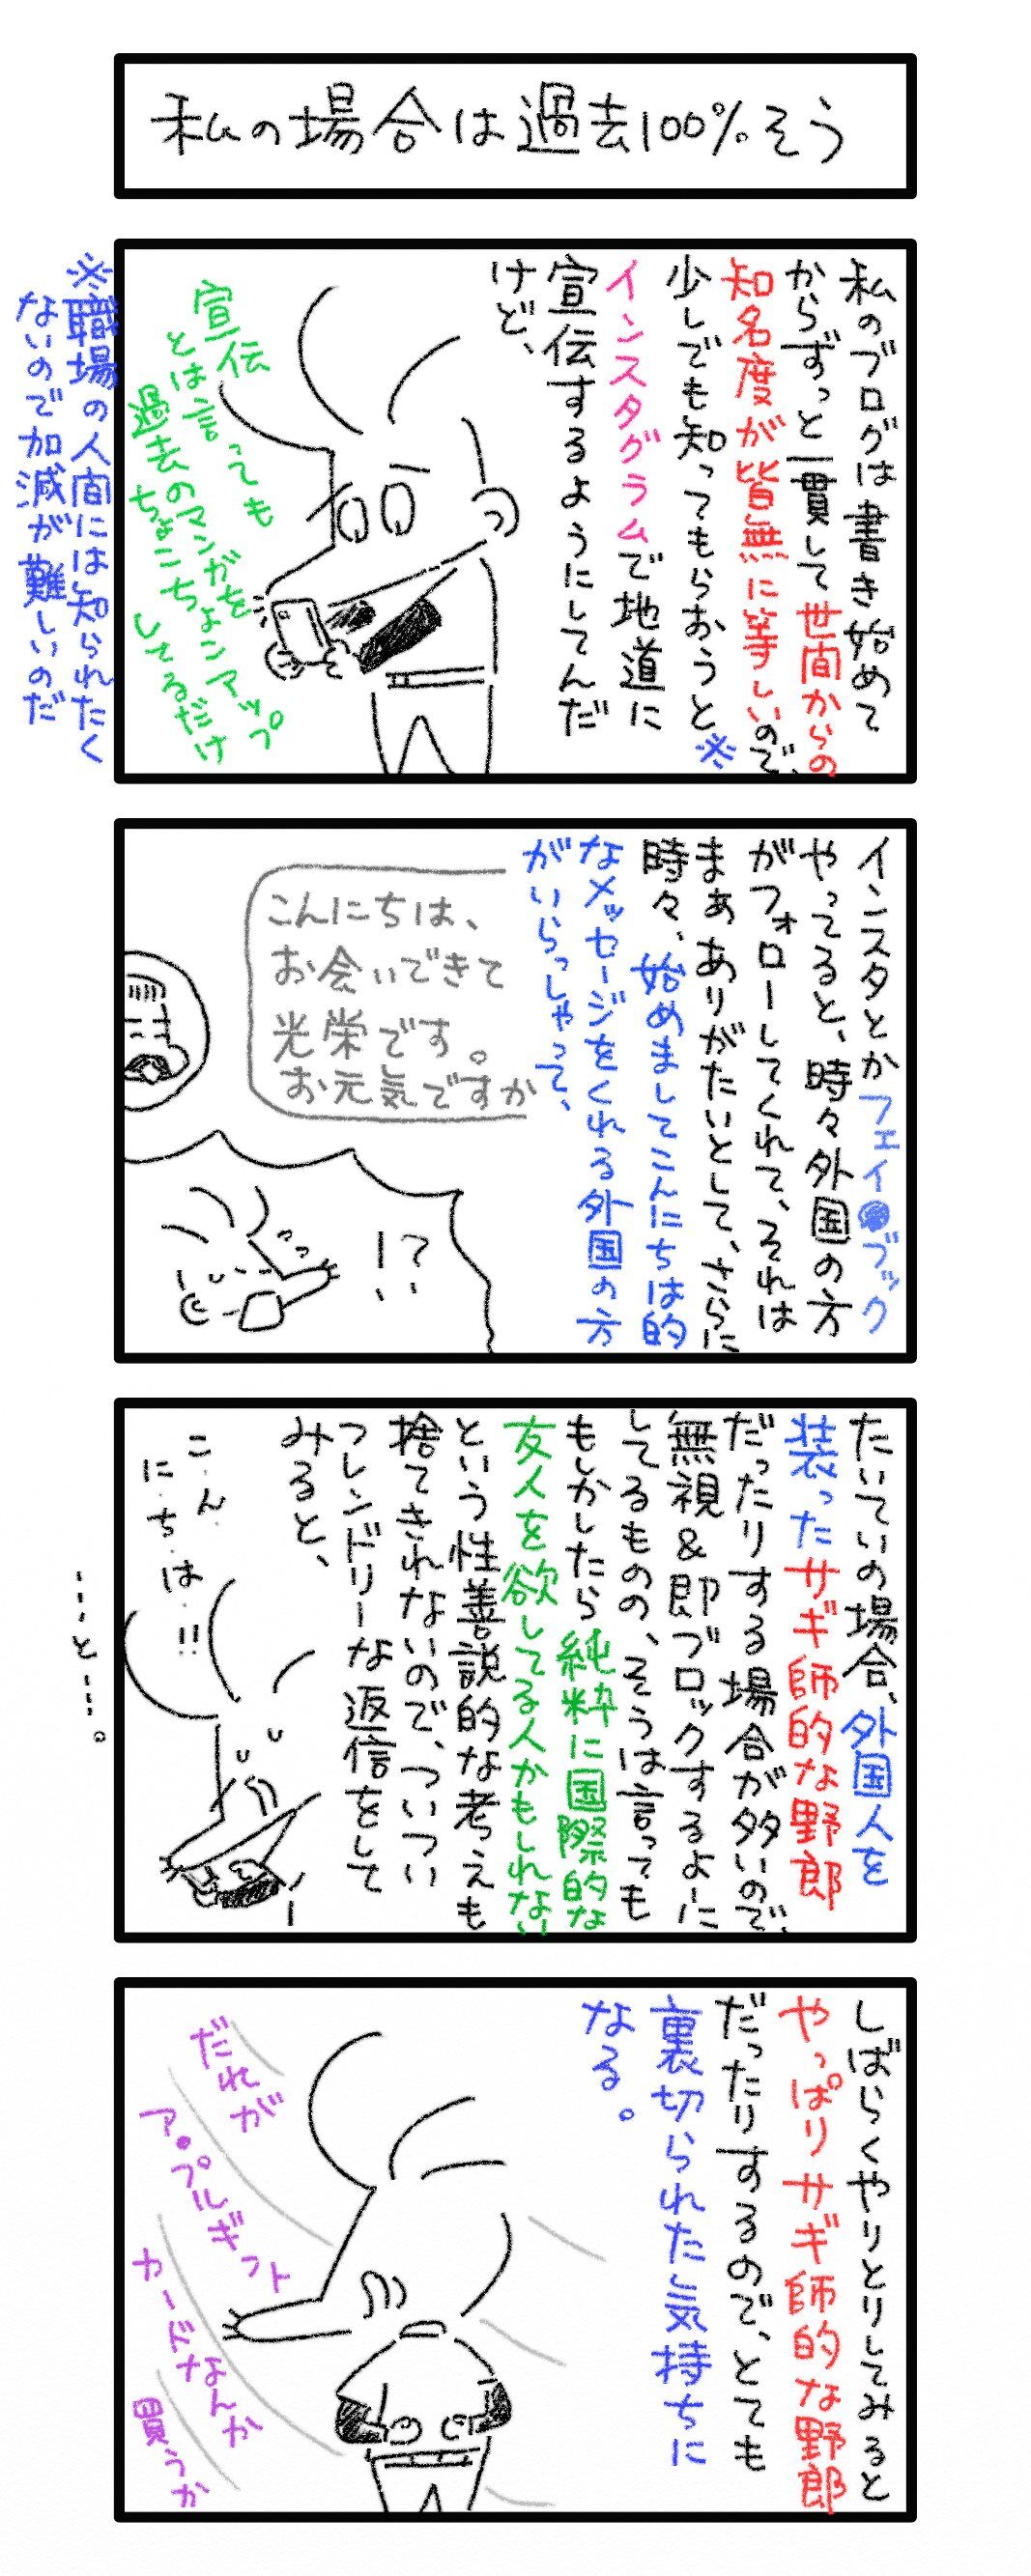 私の場合は過去100%そう
私のブログは書き始めて
からずっと一貫して世間からの
知名度が皆無に等しいので、
少しでも知ってもらおうと※
インスタグラムで地道に
宣伝するようにしてんだ
けど、
宣伝
とは言っても
過去のマンガを
ちょこちょこマップ
してるだけ
※職場の人間には知られたく
ないので加減が難しいのだ
インスタとかフェイ●ブック
やってると、時々外国の方
がフォローしてくれて、それは
まぁありがたいとして、さらに
時々、始めましてこんにちは的
なメッセージをくれる外国の方
がいらっしゃって、
こんにちは、
お会いできて
光栄です。
お元気ですか
!?
たいていの場合、外国人を
装ったサギ師的な野郎
だったりする場合が多いので、
無視&即ブロックするよーに
してるものの、そうは言っても
もしかしたら純粋に国際的な
友人を欲してる人かもしれない
という性善説的な考えも
捨てきれないので、ついつい
フレンドリーな返信をして
みると、
こん
にちは!!
…と…。
しばらくやりとりしてみると
やっぱりサギ師的な野郎
だったりするので、とても
裏切られた気持ちに
なる。
だれが
ア●プルギフト
カードなんか
買うか